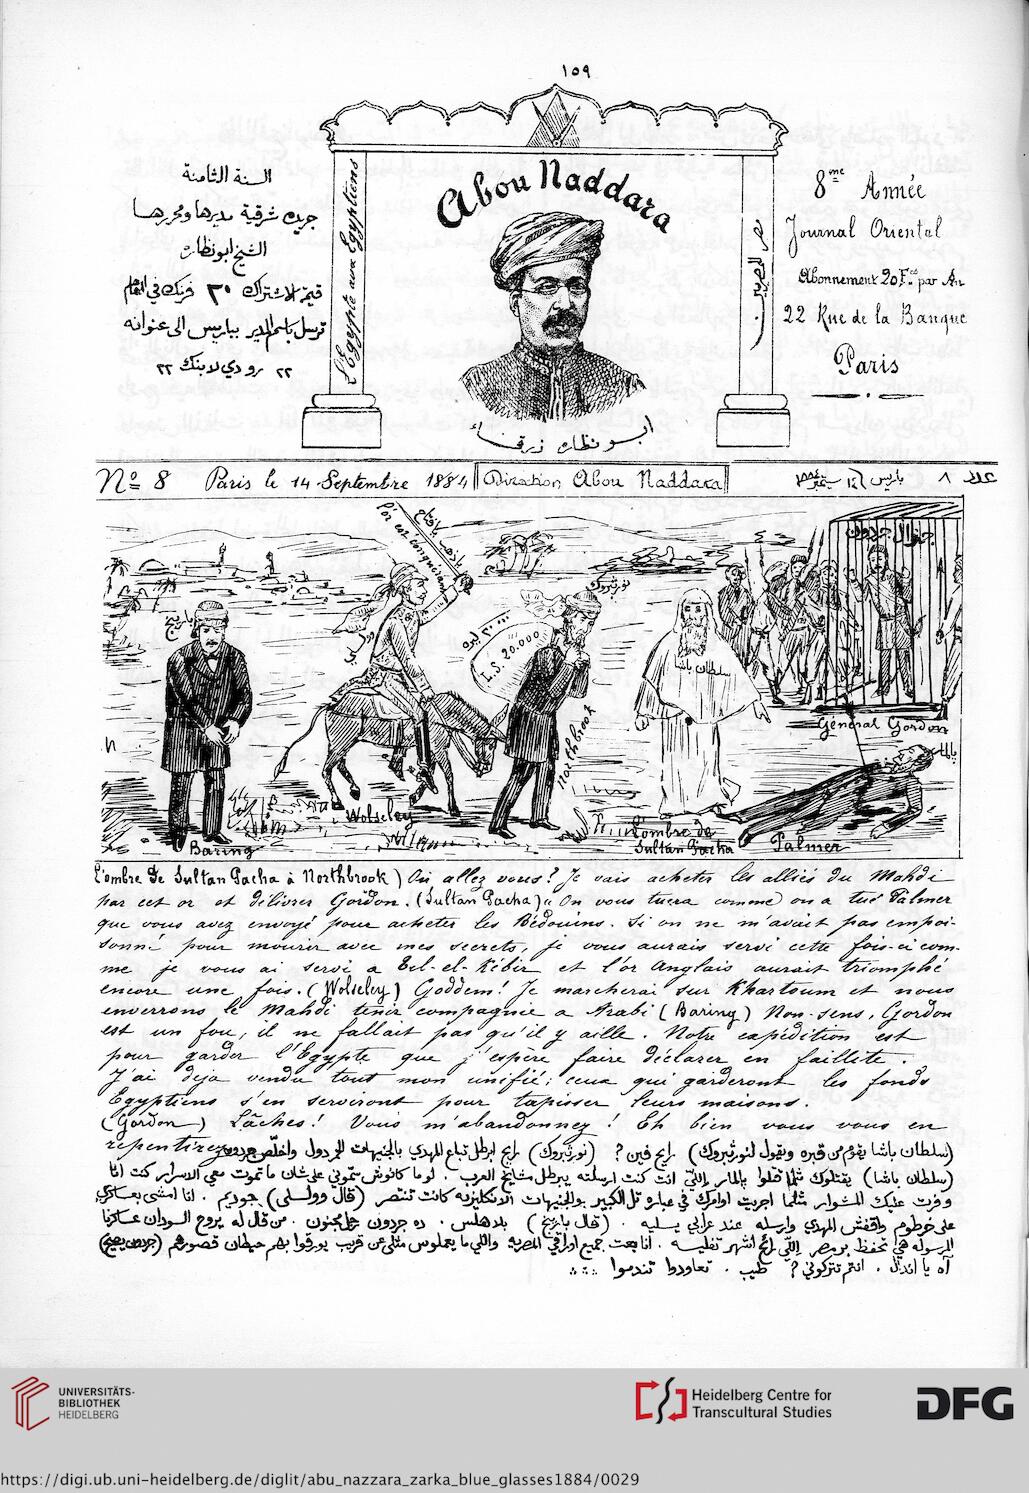 ١٥٩
السنة الثامنة
جريده شرقية مديرها ومحررها
الشيخ ابو نظاره
قيمة الاشتراك ٢٠ فرنك في العام
ترسل باسم المدير بباريس الى عنوانه
٢٢ رو دي لا بنك ٢٢
L'Egypte aux Egyptiens
Abou Naddara
مصر للمصريين
ابو نظاره زرقاء
8me Année
Journal Oriental
Abonnement 20 Fcs par An
22 Rue de la Banque
Paris
No 8 Paris le 14 Septembre 1884 Direction Abou Naddara باريس ١٤ سبتمبر ١٨٨٤ عدد ٨
l'or est conquérant
جنرال جوردون
بارنج
ولسلي
نورثبروك
٢٠٠٠٠ ليره
L.S. 20.000
سلطان باشا
Northbrook
General Gordon
بالمار
Wolseley
Baring
L'ombre de
Sultan Pacha
Palmer
L'ombre de Sultan Pacha à Northbrook) Où allez vous? Je vais acheter les alliés du Mahdi
par cet or et délivrer Gordon. (Sultan Pacha) On vous tuera comme on a tué Palmer
que vous avez envoyé pour acheter les Bédouins. Si on ne m'avait pas empoi-
sonné pour mourir avec mes secrets, je vous aurais servi cette fois-ci com-
me je vous ai servi a Tel-el-Kébir et l'or Anglais aurait triomphé
encore une fois. (Wolseley) Goddem! Je marcherai sur Khartoum et nous
enverrons le Mahdi tenir compagnie a Arabi (Baring) Non-sens, Gordon
est un fou, il ne fallait pas qu'il y aille. Notre expédition est
pour garder l'Egypte que j'espère faire déclarer en faillite.
J'ai deja vendu tout mon unifié; ceux qui garderont les fonds
Egyptiens s'en serviront pour tapisser leurs maisons.
(Gordon) Lâches! Vous m'abandonnez! Eh bien vous vous en
repentirez
(سلطان باشا يقوم من قبره ويقول لنورثبروك) رايح فين ? (نورثبروك) رايح ابرطل تباع المهدي بالجنيهات الجردول واخلّص جردون
(سلطان باشا) يقتلوك مثلما قتلوا بالمار اللي انت كنت ارسلته يبرطل مشايخ العرب . لو ما كانوش سمّوني علشان ما تموت معي الاسرار كنت انا
وفرت عليك المشوار مثلما اجريت اوامرك في عباره تل الكبير بالجنيهات الانكليزيه كانت تنتصر (قال وولسلي) جوديم . انا امشي بعساكري
على خرطوم واقفش المهدي وارسله عند عرابي يسليه . (قال بارنج) بلا هلس . ده جردون رجل مجنون . من قال له يروح السودان عساكرنا
المرسوله هي تحفظ بر مصر اللي رايح اشهر تفليسه . انا بعت جميع اوراقي المصريه واللي ما يعملوس مثلي عن قريب يورقوا بهم حيطان قصورهم (جردون يصيح)
آه يا اندال . انتم تتركوني ? طيب . تعاودوا تندموا
UNIVERSITÄTS-
BIBLIOTHEK
HEIDELBERG
Heidelberg Centre for
Transcultural Studies
DFG
https://digi.ub.uni-heidelberg.de/diglit/abu_nazzara_zarka_blue_glasses1884/0029